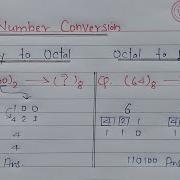 Number Conversion
y to Octal
Octal to
00)₂ → (?)₈
Q. (64)₈ →
1 0 0
4 2 1
4
4
Ans.
6
4 2 1
1 1 0
110100 Ans.